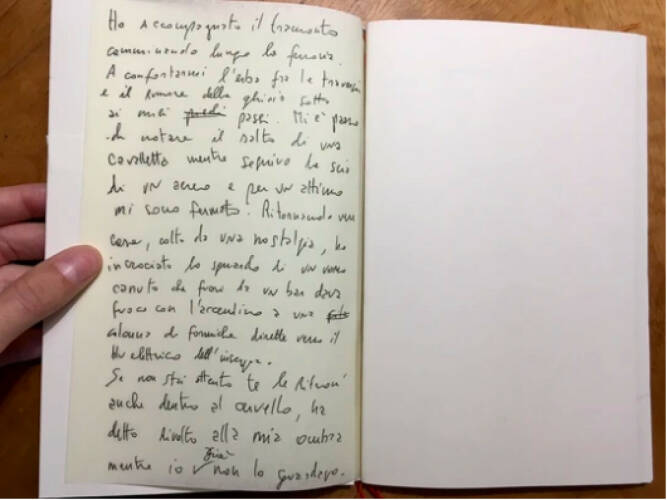 Ho accompagnato il tramonto
camminando lungo la ferrovia.
A confortarmi l'erba fra le traversine
e il rumore della ghiaia sotto
ai miei piedi passi. Mi è parso
di notare il salto di una
cavalletta mentre seguivo la scia
di un aereo e per un attimo
mi sono fermato. Ritornando verso
casa, colto da una nostalgia, ho
incrociato lo sguardo di un uomo
canuto che fuori da un bar dava
fuoco con l'accendino a una
colonna di formiche dirette verso il
blu elettrico dell'insegna.
Se non stai attento te le ritrovi
anche dentro al cervello, ha
detto rivolto alla mia ombra
mentre io già non lo guardavo.